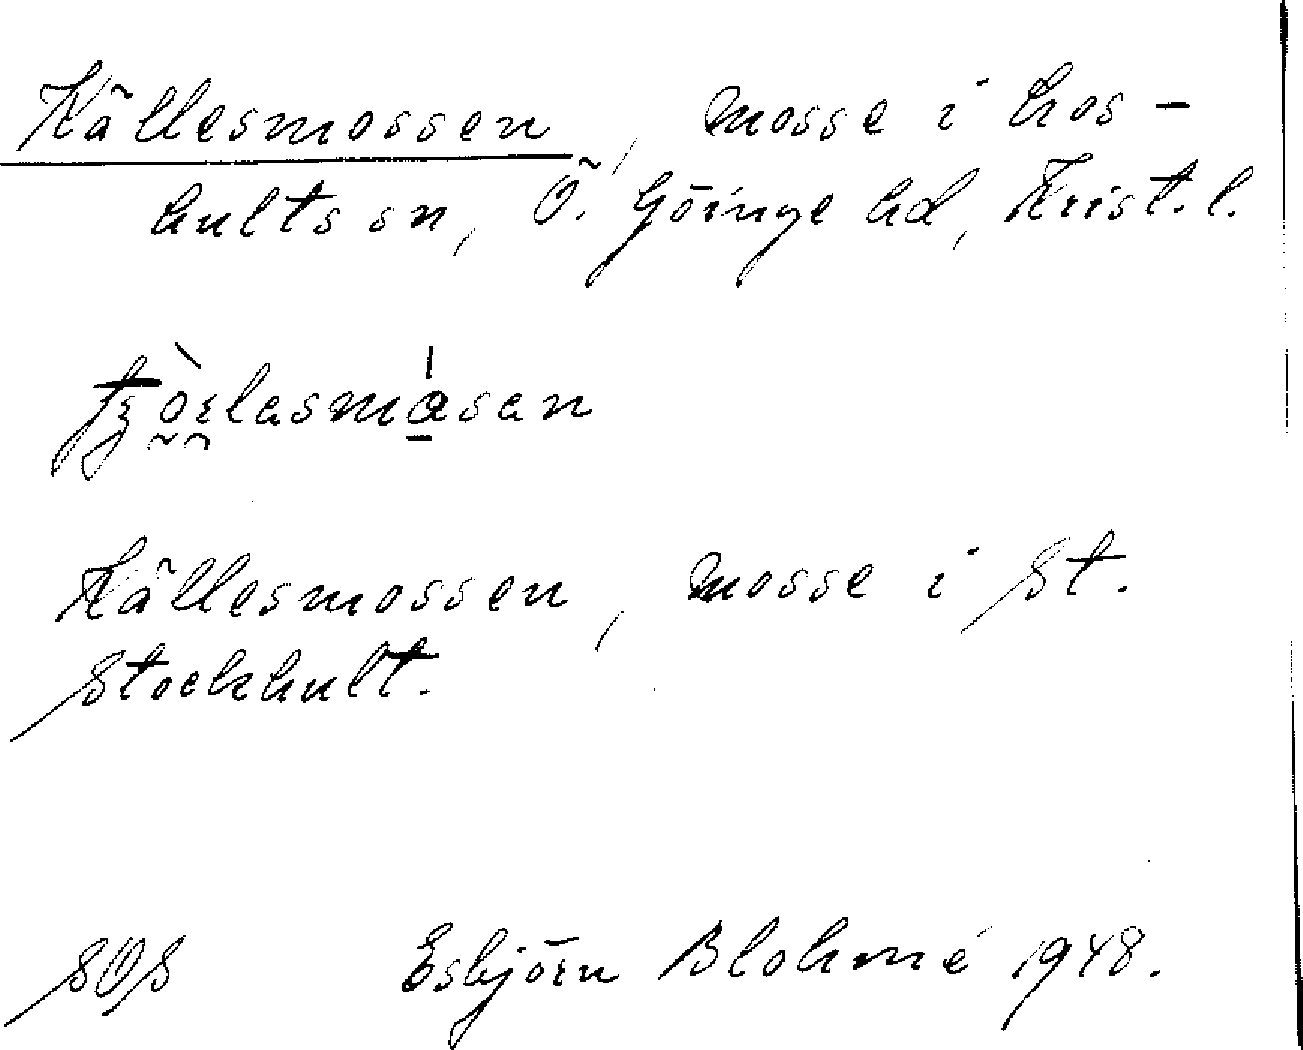 Källesmossen, mosse i Los-
hults sn, Ö. Göinge hd, Krist. l.
Källesmossen, mosse i St.
Stockhult.
SOS Esbjörn Blohmé 1948.